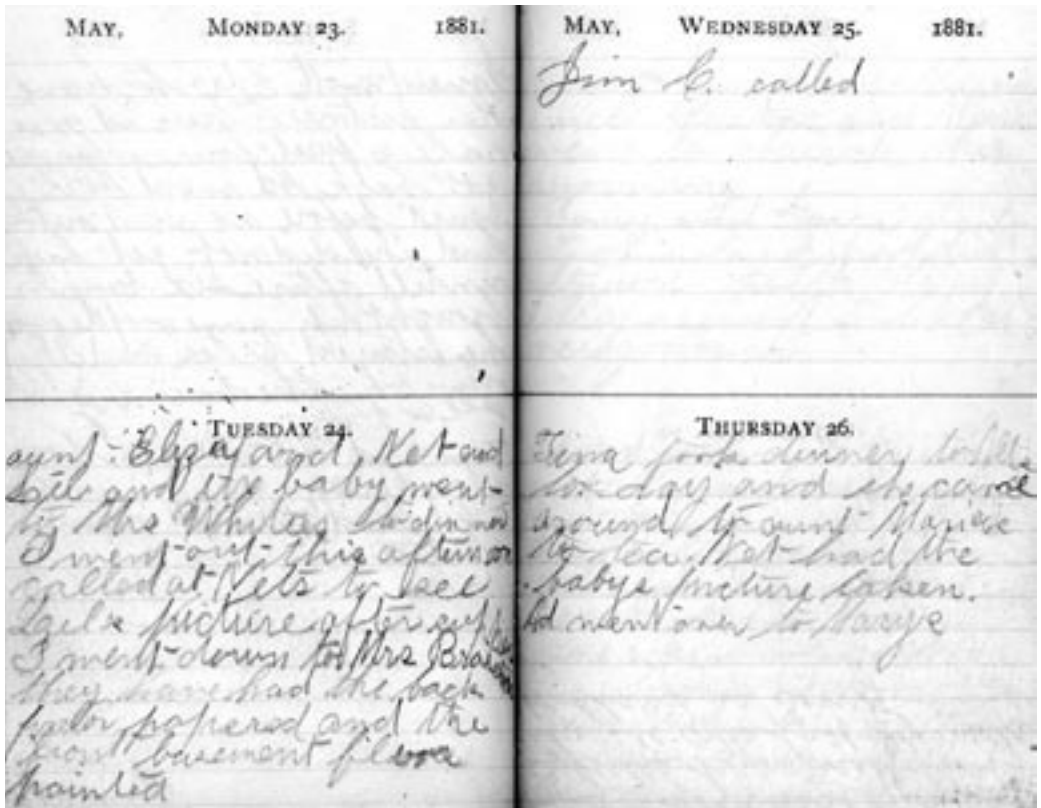 MAY, MONDAY 23. 1881.
TUESDAY 24.
aunt Eliza and Net and
and the baby went
to Mrs Whites to dinner
I went out this afternoon
called at Nets to see
picture after supp
I went down to Mrs
they have had the back
parlor papered and the
front basement floor
painted
MAY, WEDNESDAY 25. 1881.
Jim C. called
THURSDAY 26.
took dinner
to day and she came
around to aunt Maries
to tea Net had the
babys picture taken.
went over to Marys